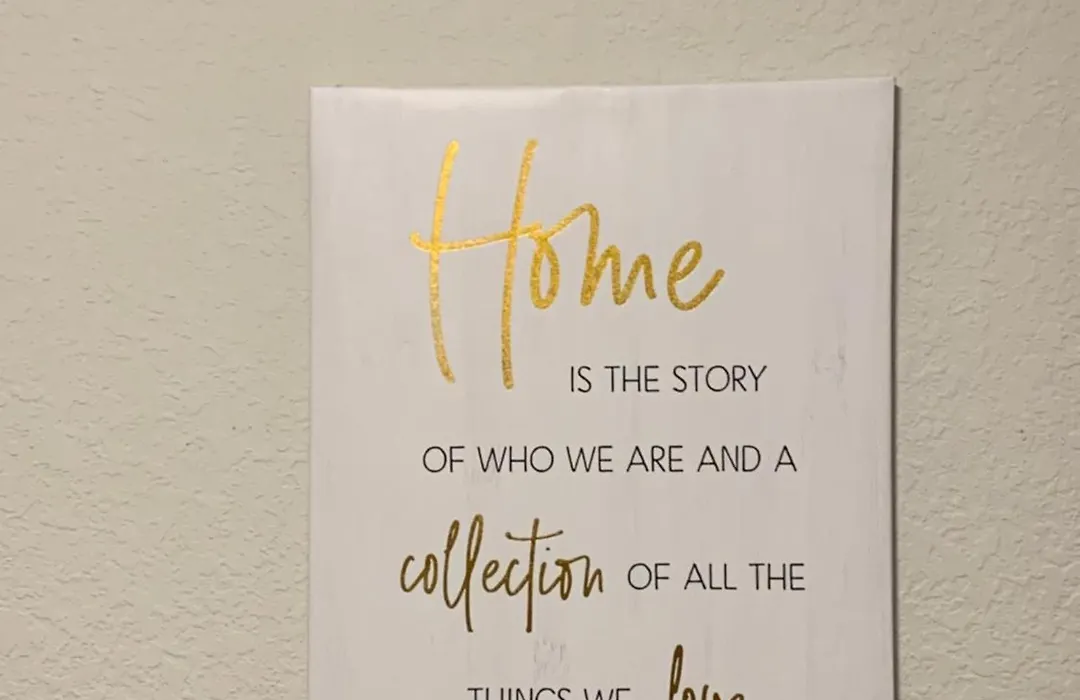 Home
IS THE STORY
OF WHO WE ARE AND A
collection OF ALL THE
THINGS WE love